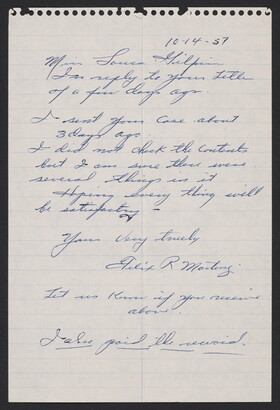 10-14-57
Miss Laura Gilpin
In reply to your letter
of a few days ago.
I sent your case about
3 days ago.
I did not check the contents
but I am sure there were
several things in it
Hoping every thing will
be satisfactory -
Yours very truely
Felix R Martinez
Let us know if you receive
above.
I also paid the